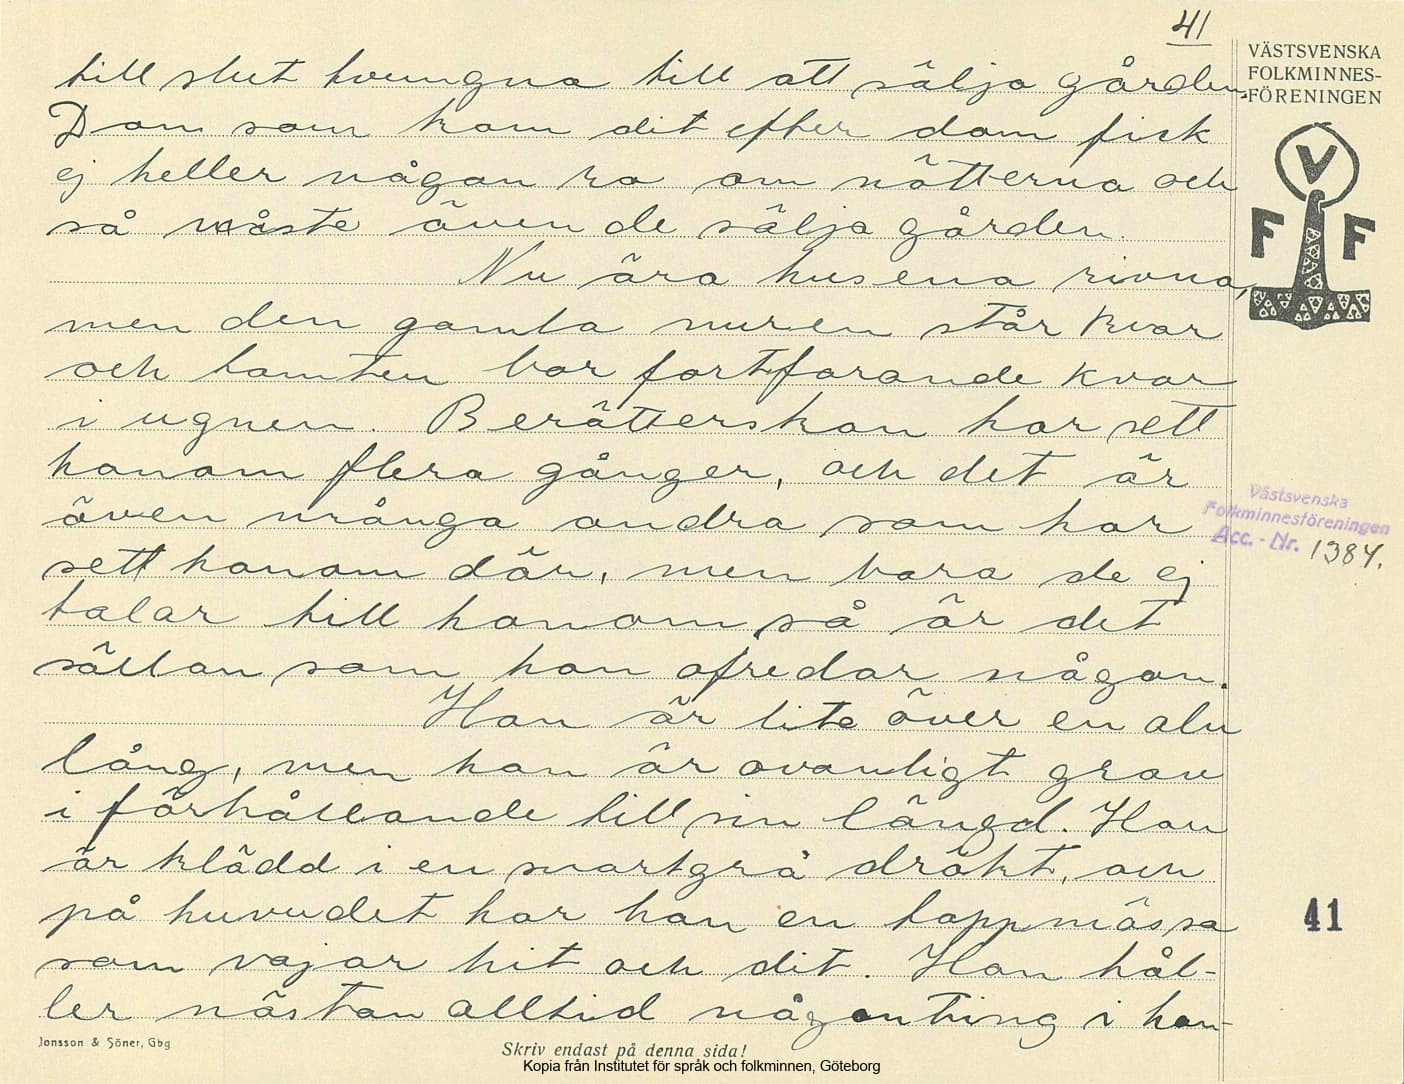 41
VÄSTSVENSKA
FOLKMINNES-
FÖRENINGEN
V
F F
till slut tvungna till att sälja gården.
Dom som kom dit efter dom fick
ej heller någon ro om nätterna och
så måste även de sälja gården.
Nu äro husena rivna,
men den gamla muren står kvar
och tomten bor fortfarande kvar
i ugnen. Berätterskan har sett
honom flera gånger, och det är
även många andra som har
sett honom där, men bara de ej
talar till honom så är det
sällan som han ofredar någon.
Han är lite över en aln
lång, men han är ovanligt grov
i förhållande till sin längd. Han
är klädd i en svartgrå dräkt, och
på huvudet har han en toppmössa
som vajar hit och dit. Han hål-
ler nästan alltid någonting i han-
Västsvenska
Folkminnesföreningen
Acc. - Nr. 1384.
41
Jonsson & Söner, Gbg
Skriv endast på denna sida!
Kopia från Institutet för språk och folkminnen, Göteborg